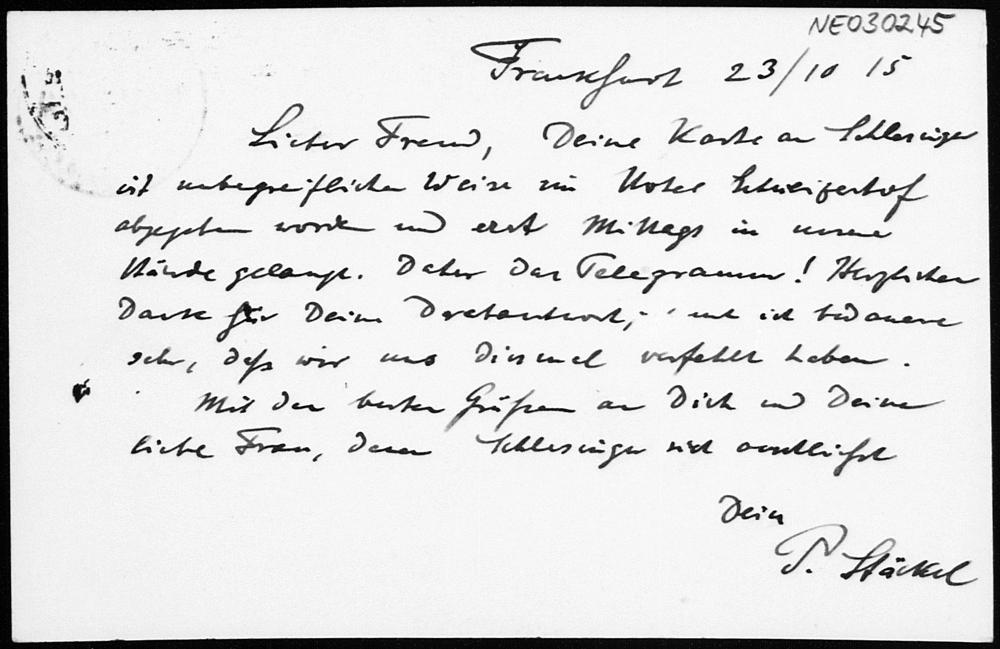 NE030245
Frankfurt 23/10 15
Lieber Freund, Deine Karte an Schlesinger
ist unbegreiflicher Weise im Hotel Schweizerhof
abgegeben worden und erst Mittags in unsere
Hände gelangt. Daher das Telegramm! Herzlichen
Dank für Deine Drahtantwort; und ich bedauere
sehr, daß wir uns diesmal verfehlt haben.
Mit den besten Grüßen an Dich und Deine
liebe Frau, denen Schlesinger sich anschließt
Dein
P. Stäckel